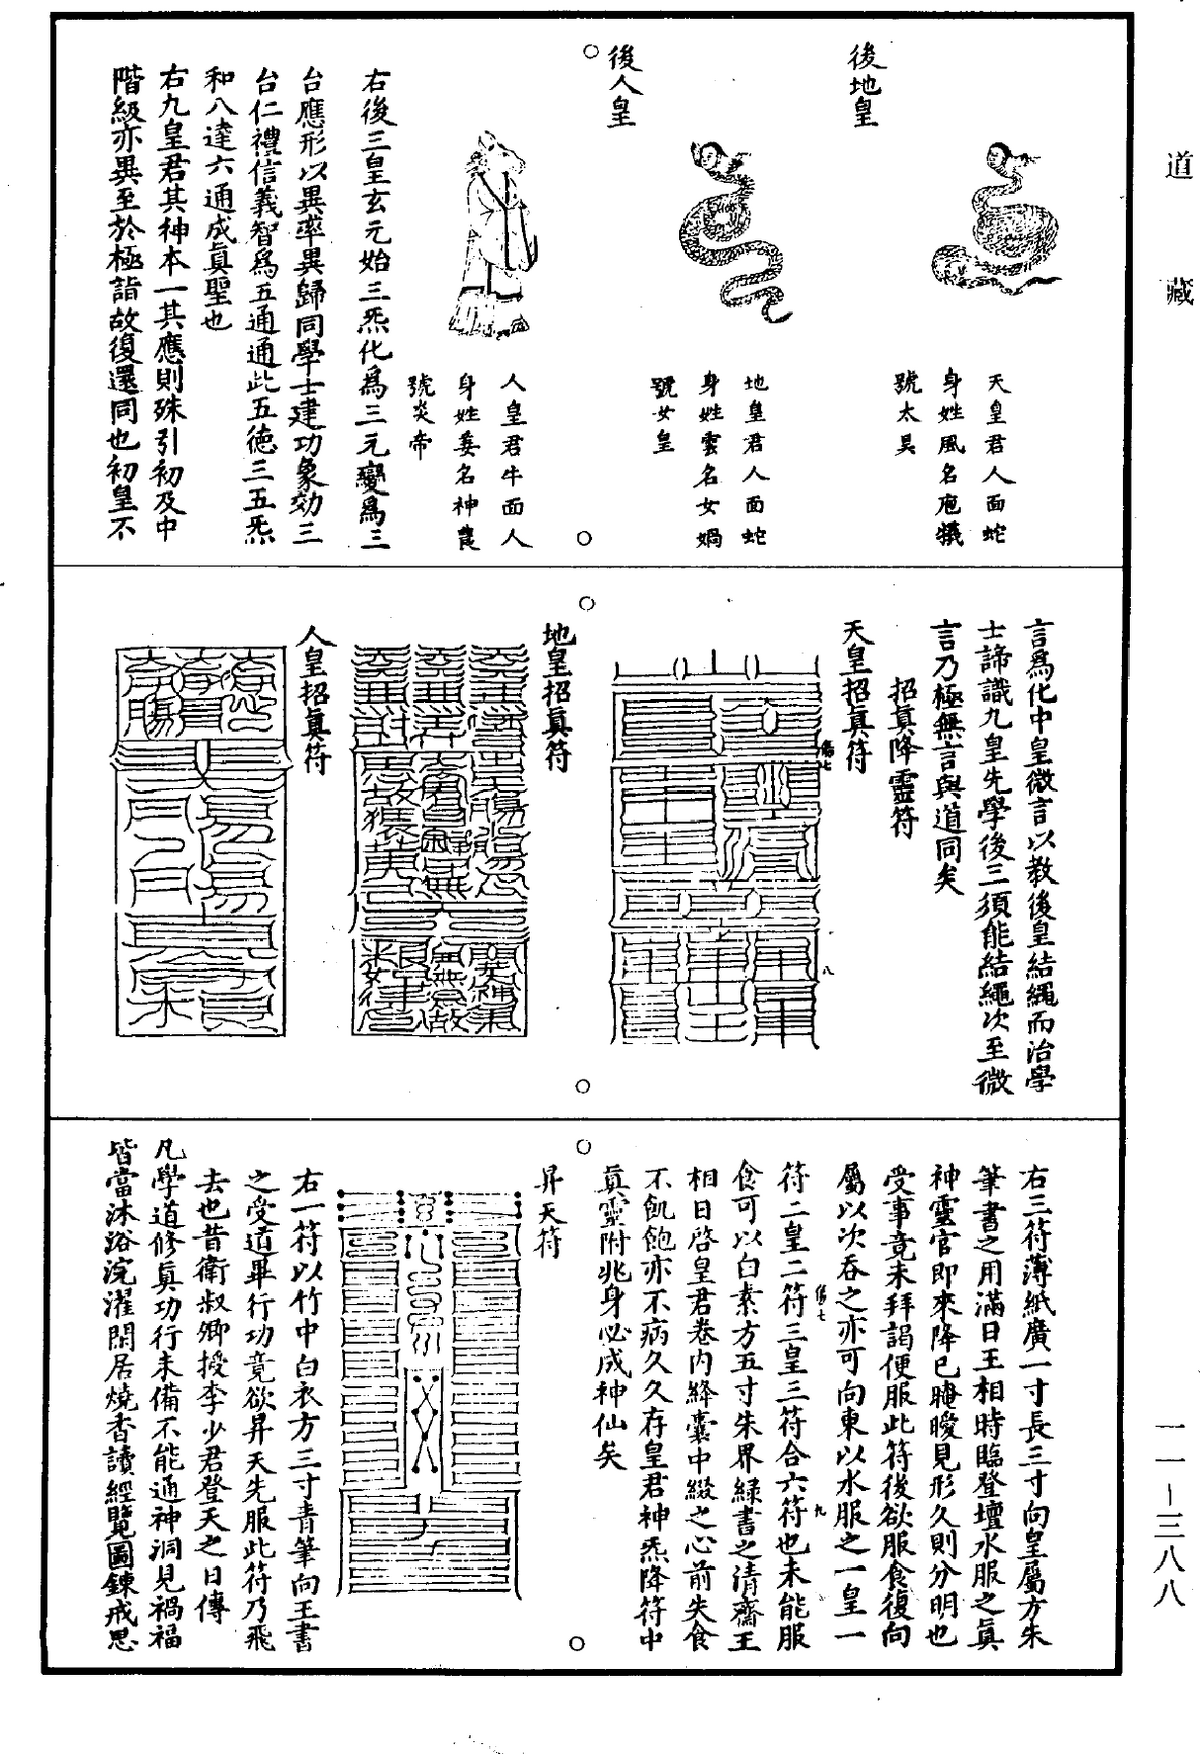 道藏
後地皇
天皇君人面蛇
身姓風名庖犧
號太昊
後人皇
地皇君人面蛇
身姓雲名女媧
號女皇
人皇君牛面人
身姓姜名神農
號炎帝
右後三皇玄元始三炁化爲三元變爲三
台應形以異率異歸同學士建功象効三
台仁禮信義智爲五通通此五德三五炁
和八達六通成眞聖也
右九皇君其神本一其應則殊引初及中
階級亦異至於極詣故復還同也初皇不
言爲化中皇微言以教後皇結繩而治學
士諦識九皇先學後三須能結繩次至微
言乃極無言與道同矣
招眞降靈符
天皇招眞符
傷七
八
地皇招眞符
人皇招眞符
右三符薄紙廣一寸長三寸向皇屬方朱
筆書之用滿日王相時臨登壇水服之眞
神靈官即來降已晻曖見形久則分明也
受事竟未拜謁便服此符後欲服食復向
屬以次吞之亦可向東以水服之一皇一
傷七
九
符二皇二符三皇三符合六符也未能服
食可以白素方五寸朱界緑書之清齋王
相日啓皇君卷内絳囊中綴之心前失食
不飢飽亦不病久久存皇君神炁降符中
眞靈附兆身必成神仙矣
昇天符
右一符以竹中白衣方三寸青筆向王書
之受道畢行功竟欲昇天先服此符乃飛
去也昔衛叔卿授李少君登天之日傳
凡學道修眞功行未備不能通神洞見禍福
皆當沐浴浣濯閑居燒香讀經覽圖鍊戒思
一一－三八八